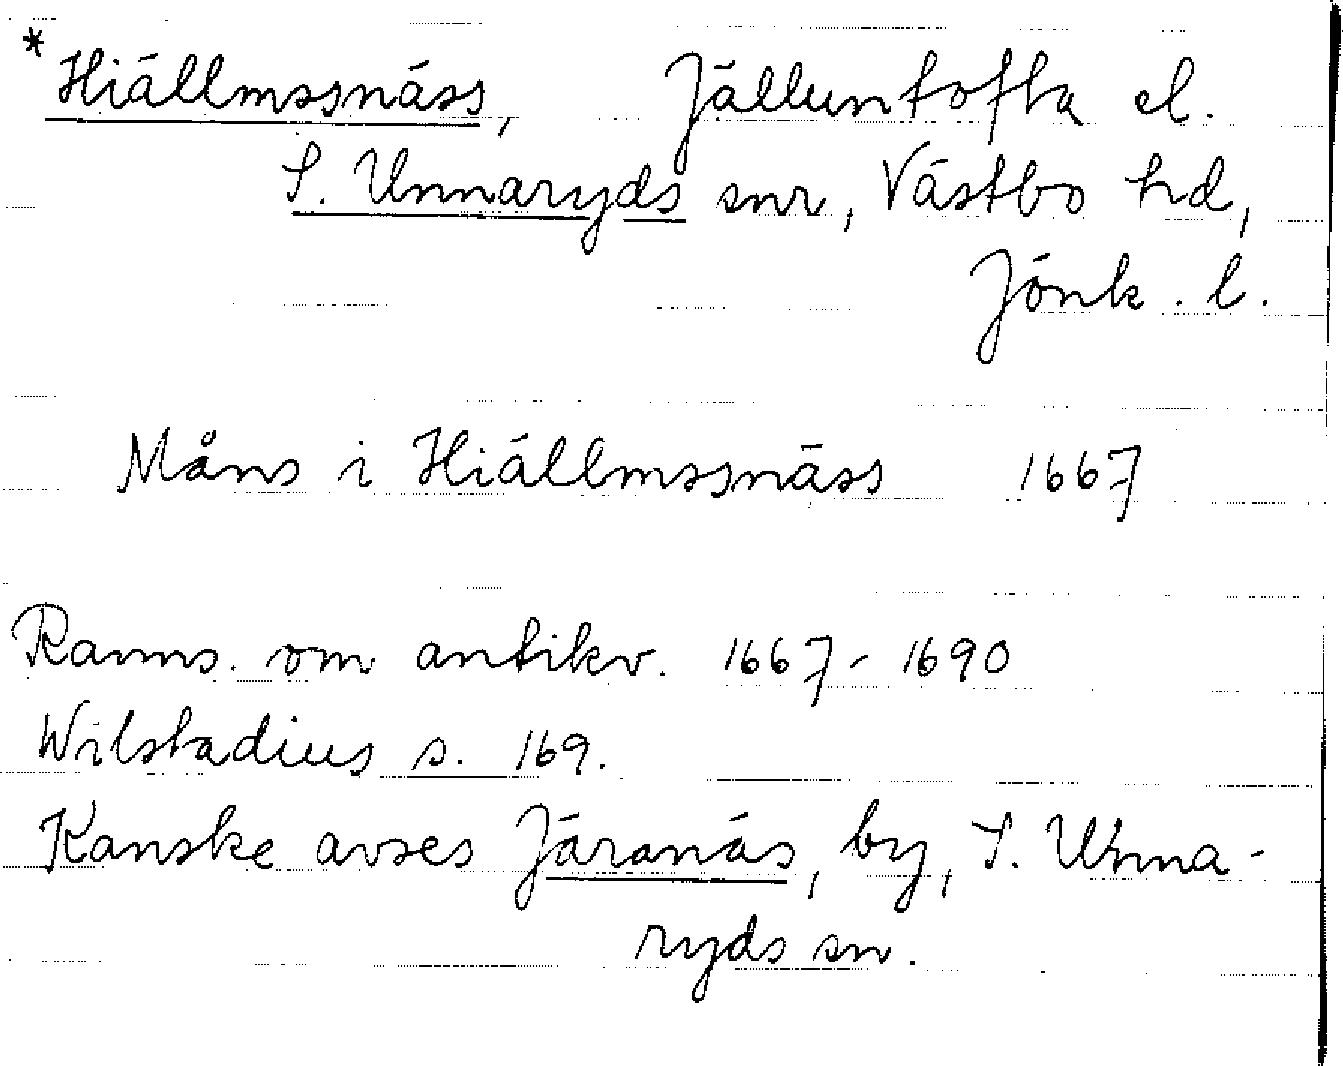 * Hiällmssnäss, Jälluntofta el.
S. Unnaryds snr, Västbo hd,
Jönk. l.
Måns i Hiällmssnäss 1667
Ranns. om antikv. 1667-1690
Wilstadius s. 169.
Kanske avses Järanäs, by, S. Unna-
ryds sn.